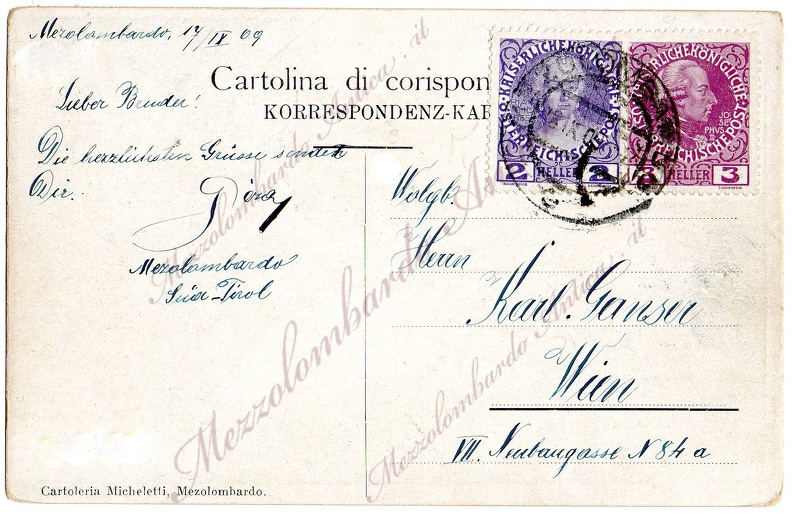 Mezolombardo, 17/IX 09
Cartolina di corispon
KORRESPONDENZ-KAR
Lieber Bruder!
Die herzlichsten Grüsse sendet
Dir.
Mezolombardo
Süd-Tirol
KAISERLICHEKÖNIGLICHE
ÖSTERREICHISCHE POST
2 HELLER 2
JOSEPHVS II
3 HELLER 3
Wolgb.
Herrn
Karl. Ganser
Wien
VII. Neubaugasse N 84 a
Cartoleria Micheletti, Mezolombardo.
Mezzolombardo Antica . it
Mezzolombardo Antica . it
Mezzolombardo Antica . it